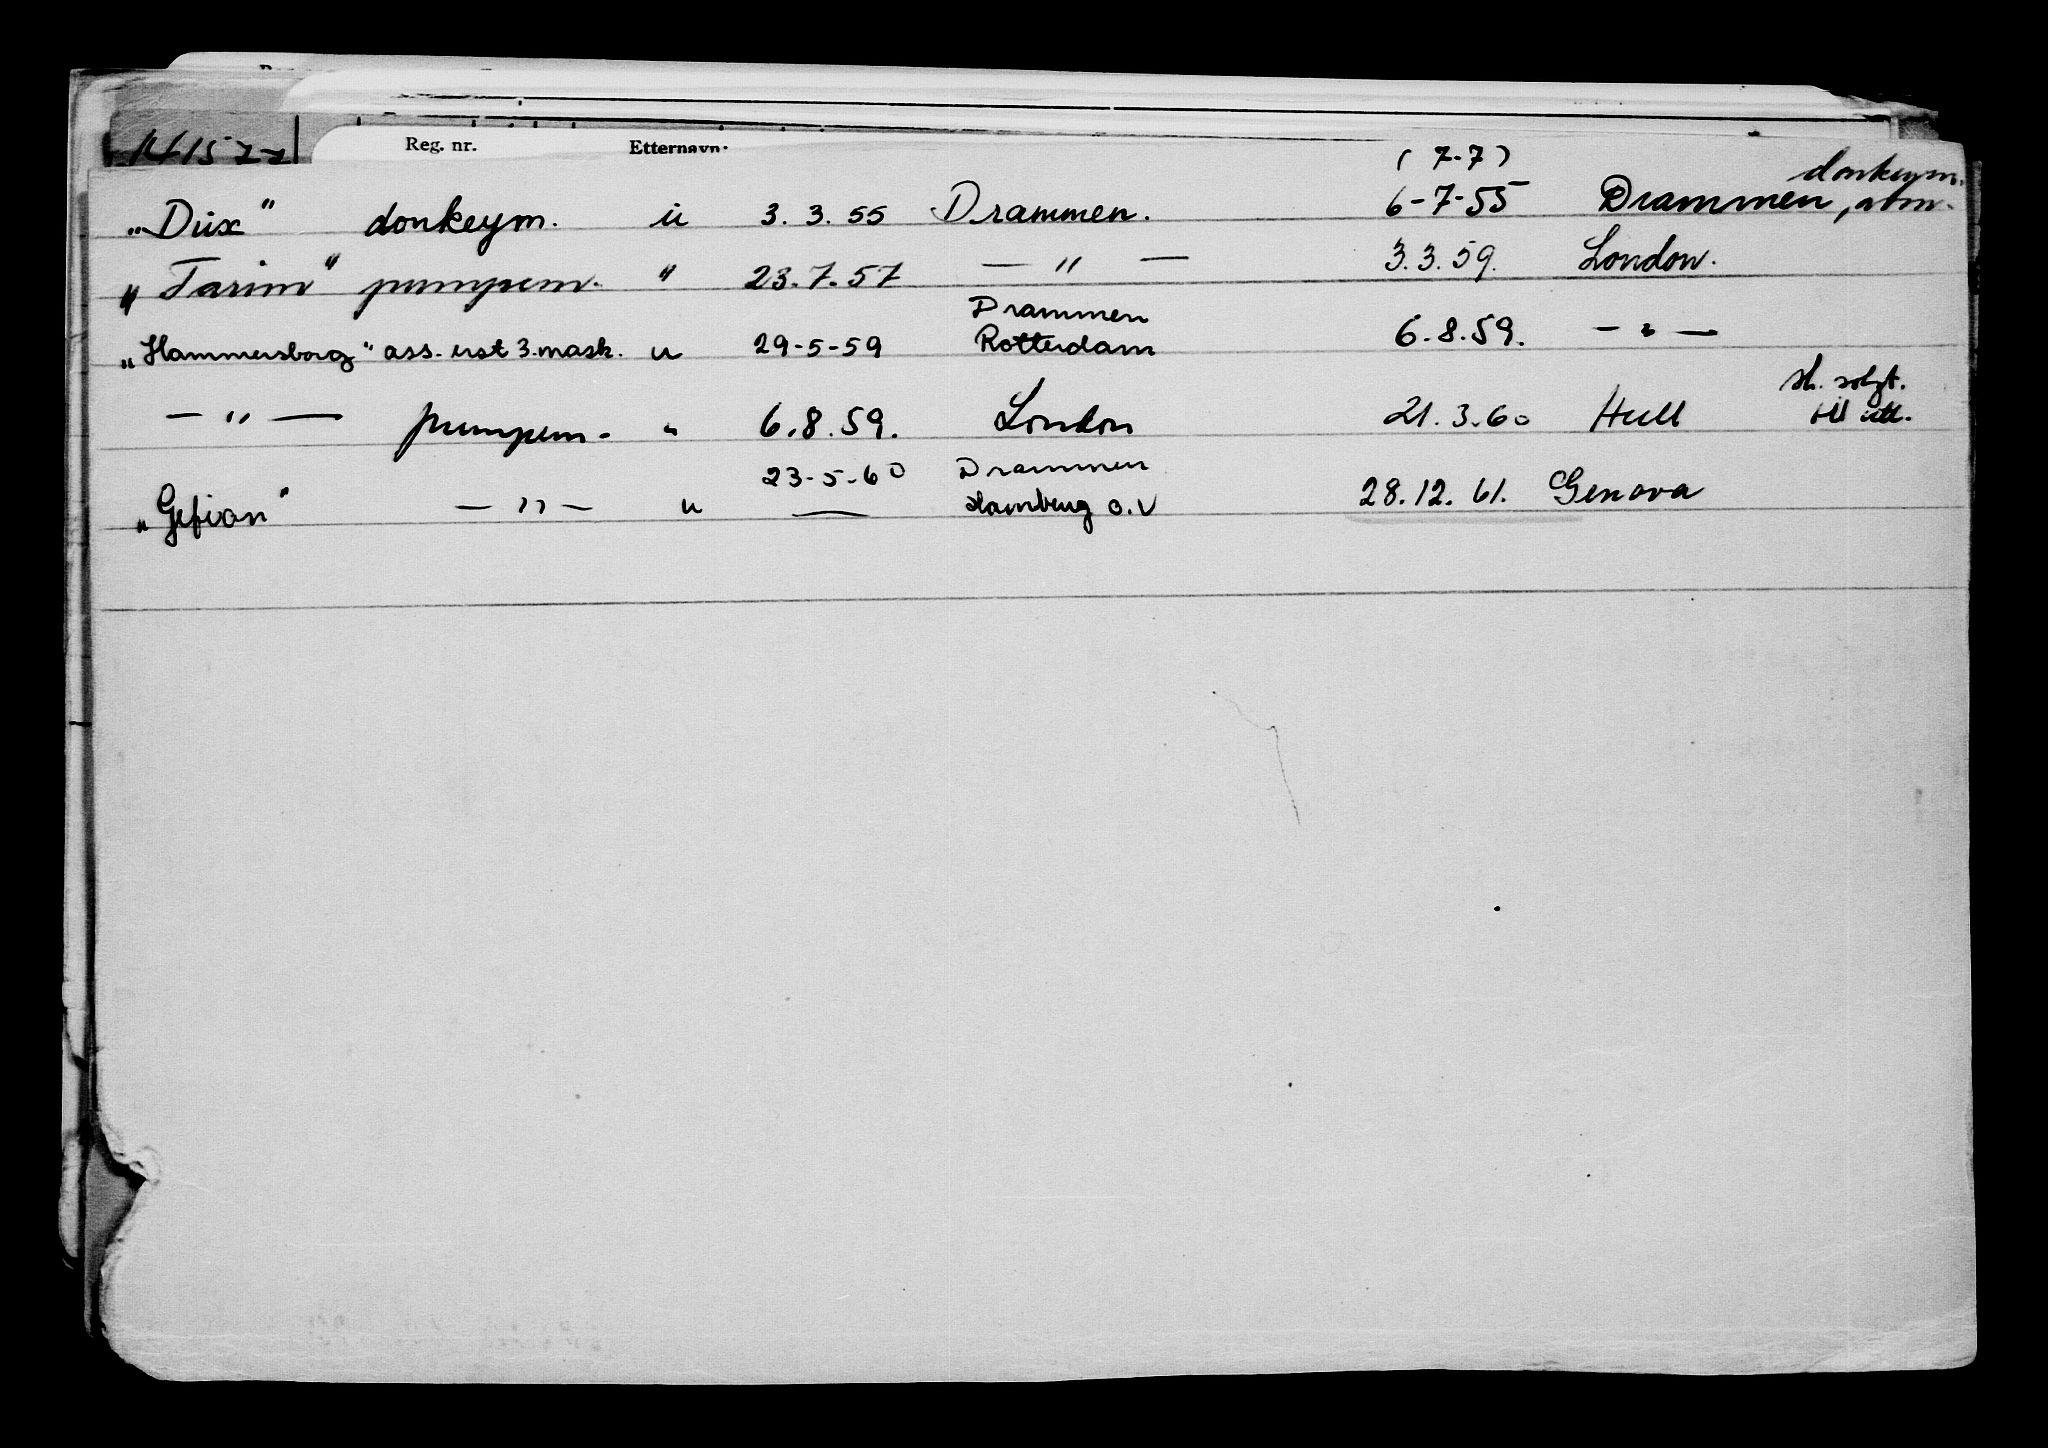 Reg. nr. Etternavn.
(7-7) donkeym.
„Dux" donkeym. u 3. 3. 55 Drammen. 6-7-55 Drammen,
„Tarim" pumpem. " 23.7.57 — " — 3.3.59. London.
Drammen
„Hammersborg" ass. 3. mask. u 29-5-59 Rotterdam 6.8.59. — " —
— " — pumpem. " 6.8.59. London 21.3.60 Hull sk. solgt. til utl.
23-5-60 Drammen
„Gefion" — " — u — Hamburg o.V 28.12.61. Genova